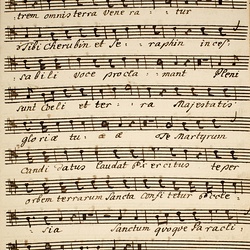 trem omnis terra vene ra - tur
Tibi Cherubin et Se - raphin inces,
sabili voce procla - mant Pleni
sunt Cœli et ter - ra Majestatis
gloriæ tu - æ Te Martyrum
candi datus Laudat Exercitus te per
orbem terrarum Sancta Confi tetur
sia Sanctum quoque Paracli